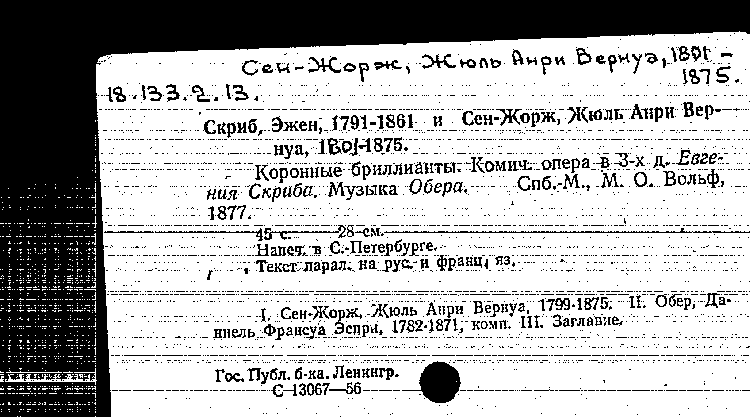 Сен-Жорж, Жюль Анри Вернуа, 1801-
1875.
18.133.2.13.
Скриб, Эжен, 1791-1861 и Сен-Жорж, Жюль Анри Вер-
нуа, 1801-1875.
Коронные бриллианты. Комич. опера в 3-х д. Евге-
ния Скриба. Музыка Обера. Спб.-М., М. О. Вольф,
1877.
45 с. 28 см.
Напеч. в С.-Петербурге.
Текст парал. на рус. и франц. яз.
I. Сен-Жорж, Жюль Анри Вернуа, 1799-1875. II. Обер, Да-
ниель Франсуа Эспри, 1782-1871, комп. III. Заглавие.
Гос. Публ. б-ка. Ленингр.
С 13067—56